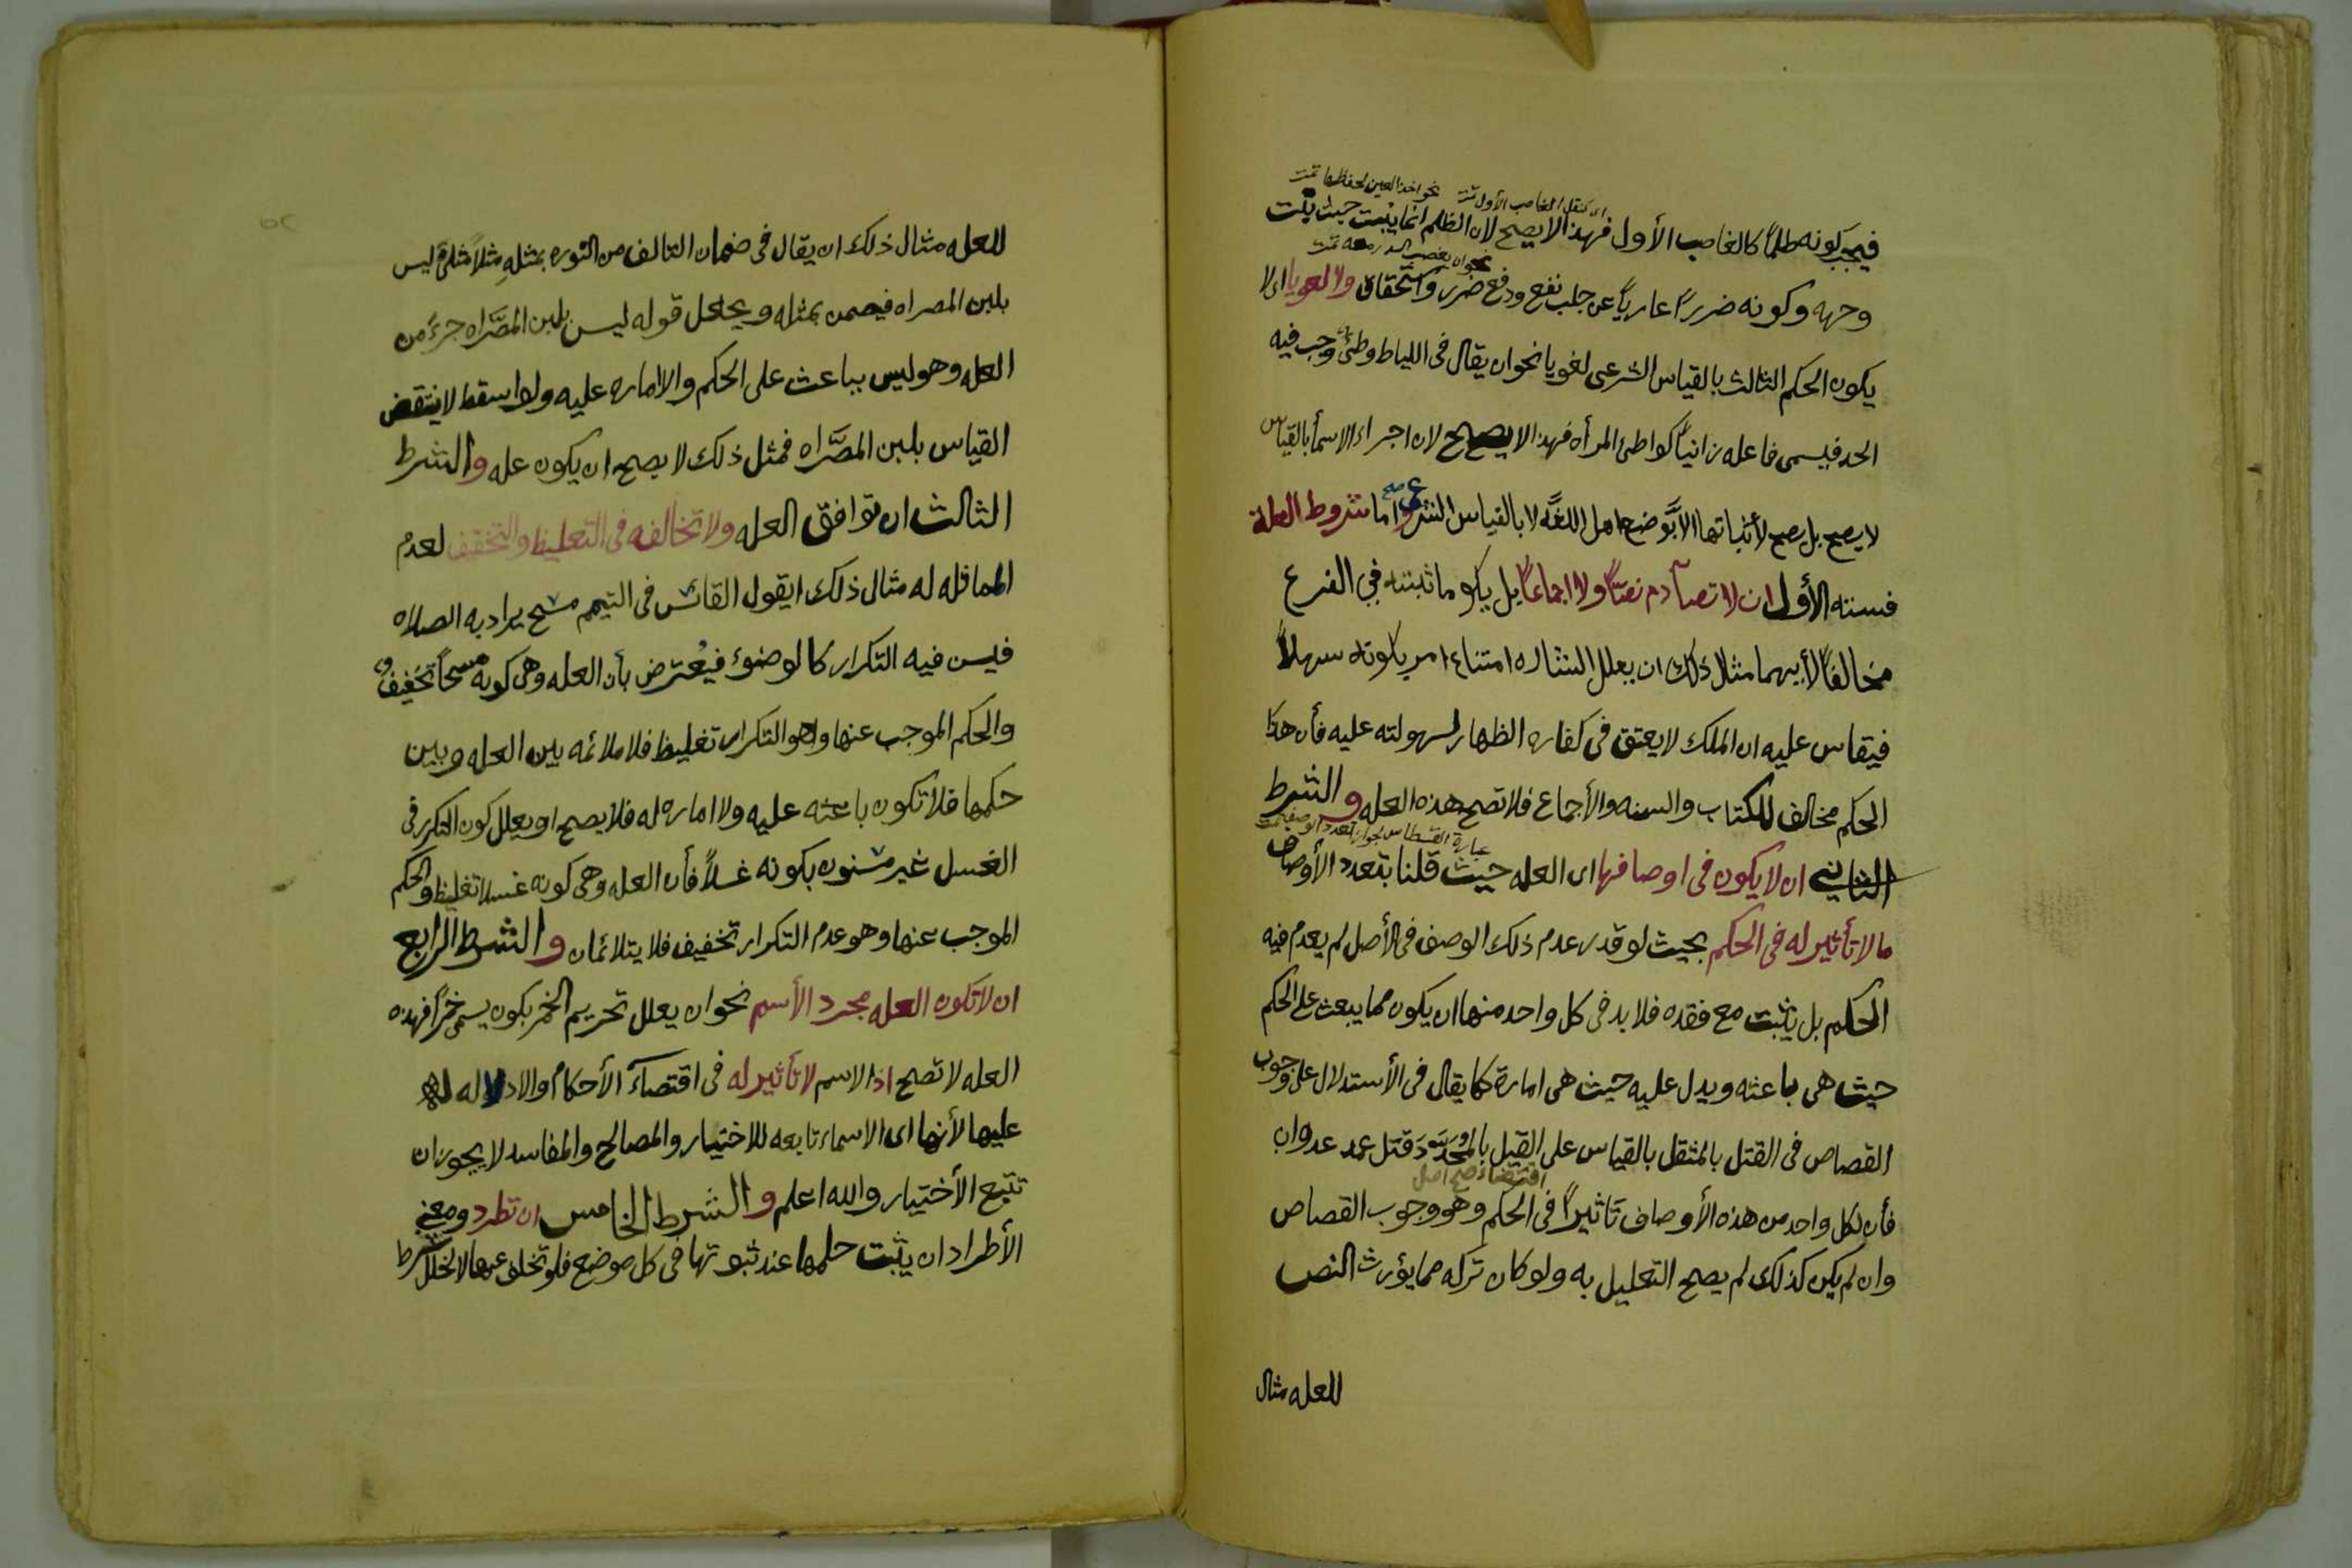 اى كنقل الغاصب الأول تمت نحو اخذ العين لحفظها تمت
فيجب كونه ظلماً كالغاصب الأول فهذا لا يصح لان الظلم انما يثبت حيث يثبت
نحو ان يغصب معه تمت
وجهه وكونه ضرراً عارياً عن جلب نفع ودفع ضرر واستحقاق ولا لغويا اى لا
يكون الحكم الثالث بالقياس الشرعى لغويا نحو ان يقال فى اللياط وطئ وجب فيه
الحد فيسمى فاعله زانياً كواطئ المرأه فهذا لا يصح لان اجراء الاسمأ بالقياس
لا يصح بل يصح لأثباتها الا بوضع اهل اللغه لا بالقياس الشرعي صح واما شروط العلة
فسته الأول ان لا تصآدم نصّاً ولا اجماعاً بل يكو ما تثبته في الفرع
مخالفاً لأيهما مثال ذلك ان يعلل الشاره امتناع امر بكونه سهلاً
فيقاس عليه ان الملك لا يعتق فى كفاره الظهار لسهولته عليه فأن هذا
الحكم مخالف للكتاب والسنه والأجماع فلا تصح هذه العله والشرط
عبارة القسطاس بجواز تعدد الوصف تمت
الثاني ان لا يكون فى اوصافها اى العله حيث قلنا بتعدد الأوصاف
ما لا تأثير له فى الحكم بحيث لو قدر عدم ذلك الوصف فى الأصل لم يعدم فيه
الحكم بل يثبت مع فقده فلا بد فى كل واحد منها ان يكون مما يبعث على الحكم
حيث هى باعثه ويدل عليه حيث هى امارة كما يقال فى الأستدلال على وجوب
القصاص فى القتل بالمثقل بالقياس على القتل بالمحدد قتل عمد عدوان
اقتضاء صح اصل
فأن لكل واحد من هذه الأوصاف تاثيراً فى الحكم وهو وجوب القصاص
وان لم يكن كذلك لم يصح التعليل به ولو كان تركه مما يؤرث النقص
للعله مثال
للعله مثال ذلك ان يقال فى ضمان التالف من بمثله مثلاً مثلى ليس
بلبن المصراه فيضمن بمثله ويجعل قوله ليس بلبن المصّراه جزءً من
العله وهو ليس بباعث على الحكم والاماره عليه ولو اسقط لانتقض
القياس بلبن المصّراه فمثل ذلك لا يصح ان يكون عله والشرط
الثالث ان توافق العله ولا تخالفه فى التغليظ والتخفيف لعدم
المماثله له مثال ذلك ان يقول القائس فى التيمم مسح يراد به الصلاه
فيسن فيه التكرار كالوضوء فيعترض بأن العله وهى كونه مسحاً تخفيف
والحكم الموجب عنها وهو التكرار تغليظ فلا ملائمه بين العله وبين
حكمها فلا تكون باعثه عليه ولا اماره له فلا يصح او يعلل كون التكرر فى
الغسل غير مسنون بكونه غسلاً فأن العله وهى كونه غسلا تغليظ والحكم
الموجب عنها وهو عدم التكرار تخفيف فلا يتلائمان والشرط الرابع
ان لا تكون العله مجرد الأسم نحو ان يعلل تحريم الخمر بكون يسمى خمراً فهذه
العله لا تصح اذ الاسم لا تأثير له فى اقتضآء الأحكام والا دلاله له
عليها لأنها اى الاسماء تابعه للاختيار والمصالح والمفاسد لا يجوز ان
تتبع الأختيار والله اعلم والشرط الخامس ان تطرد ومعنى
الأطراد ان يثبت حكمها عند ثبوتها فى كل موضع فلو تخلف عنها لا لخلل شرط